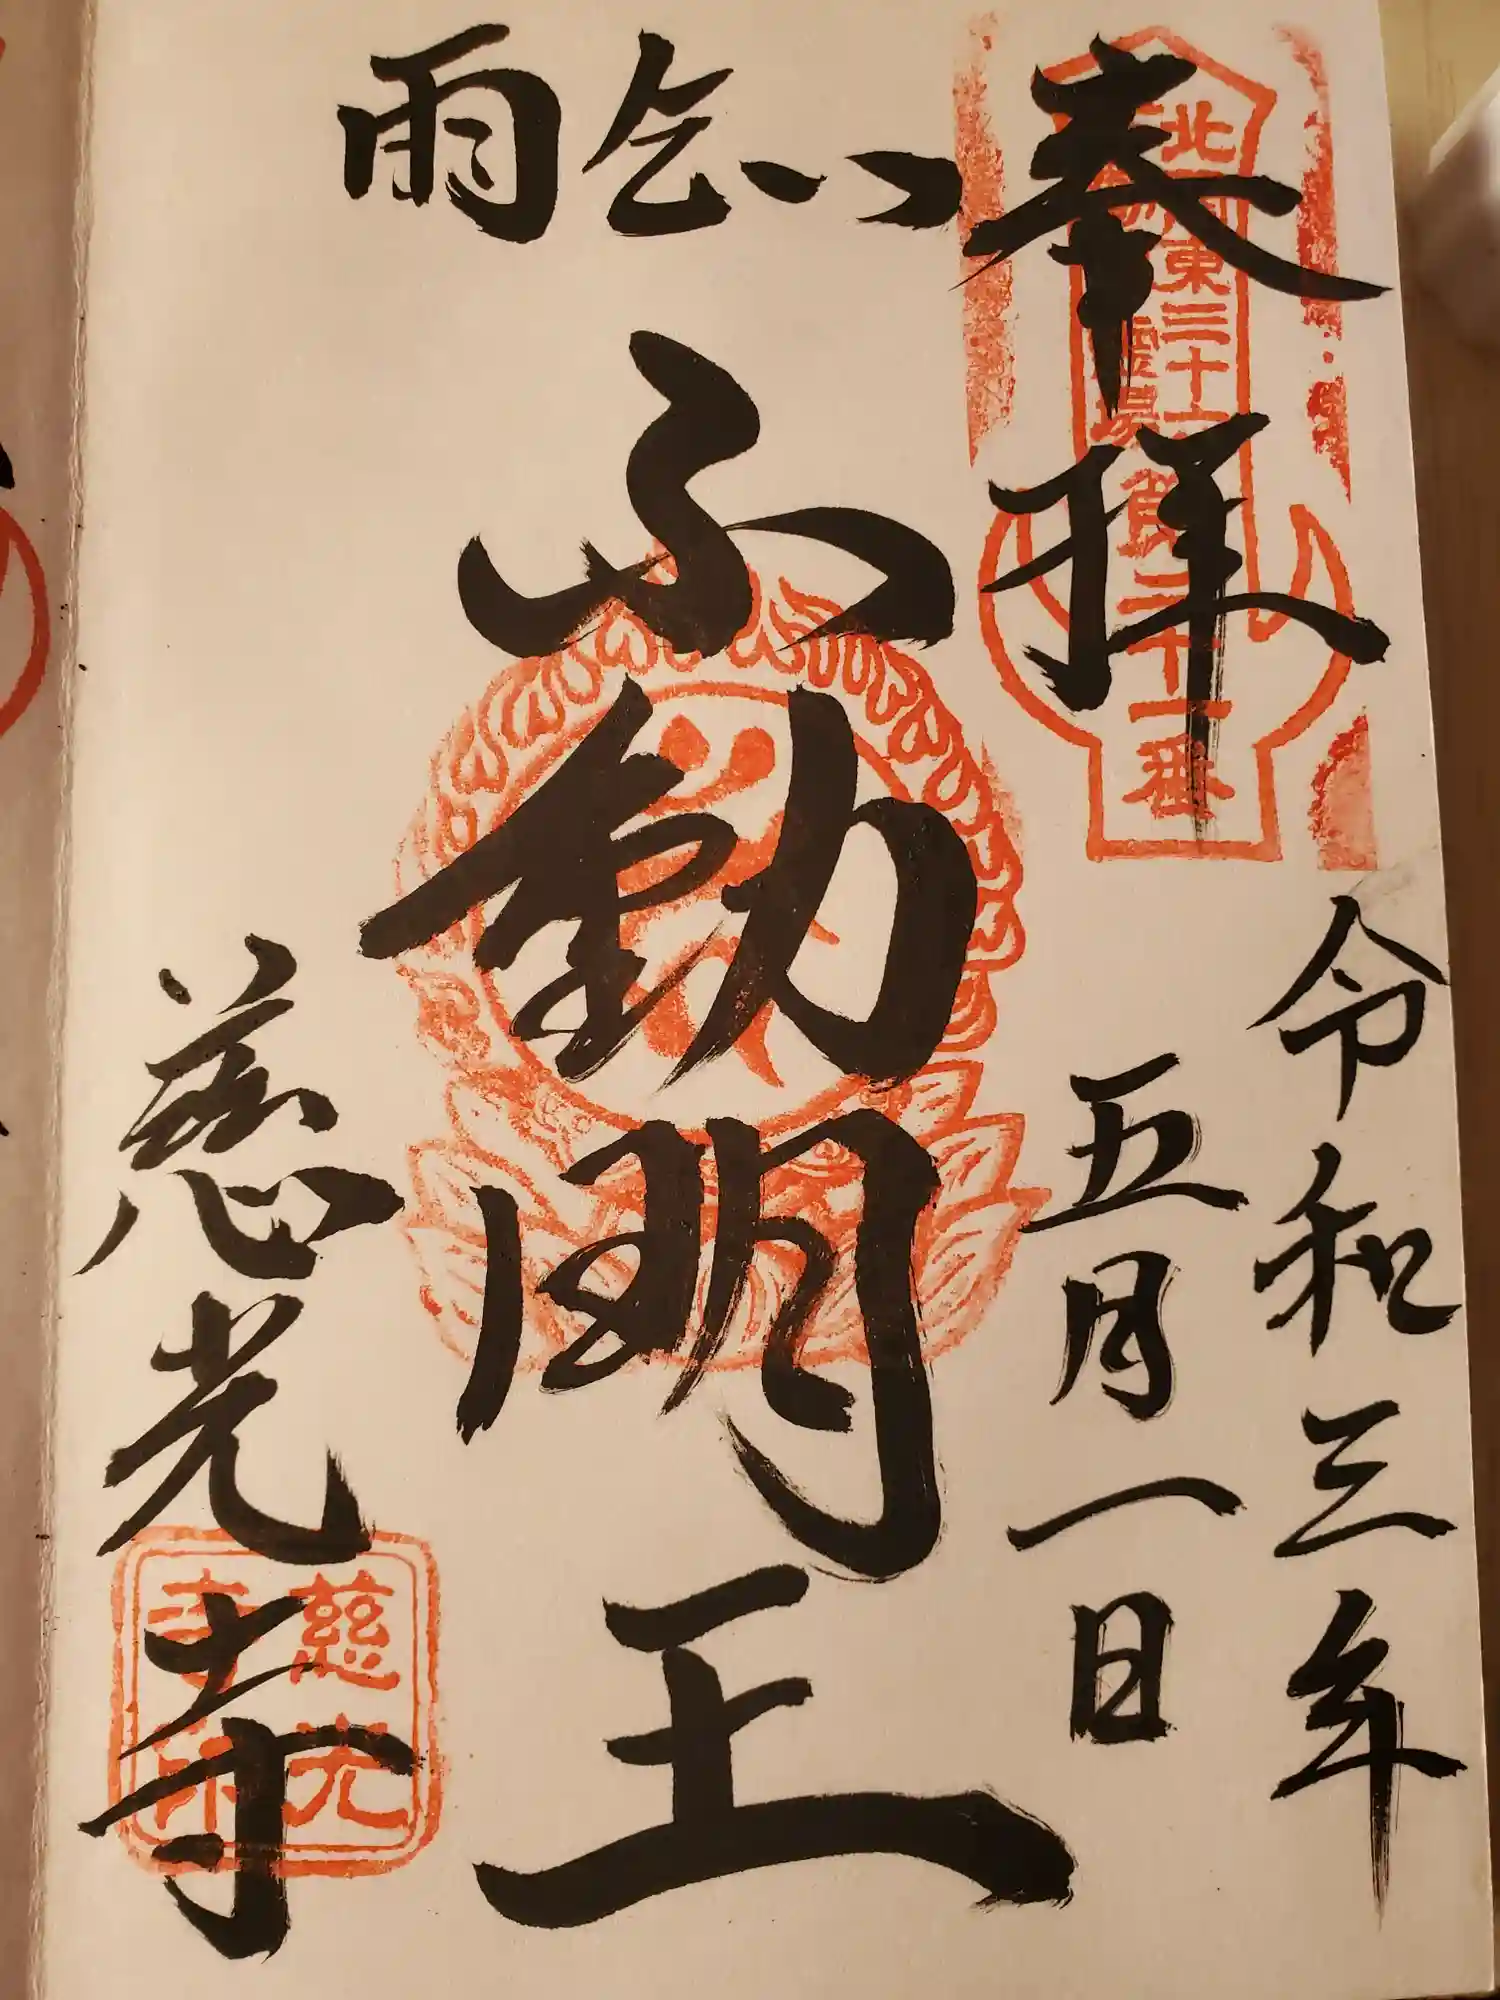 奉拝
令和三年
五月一日
雨乞い
不動明王
慈光寺
北関東三十六
霊場
第二十一番
慈光
寺印